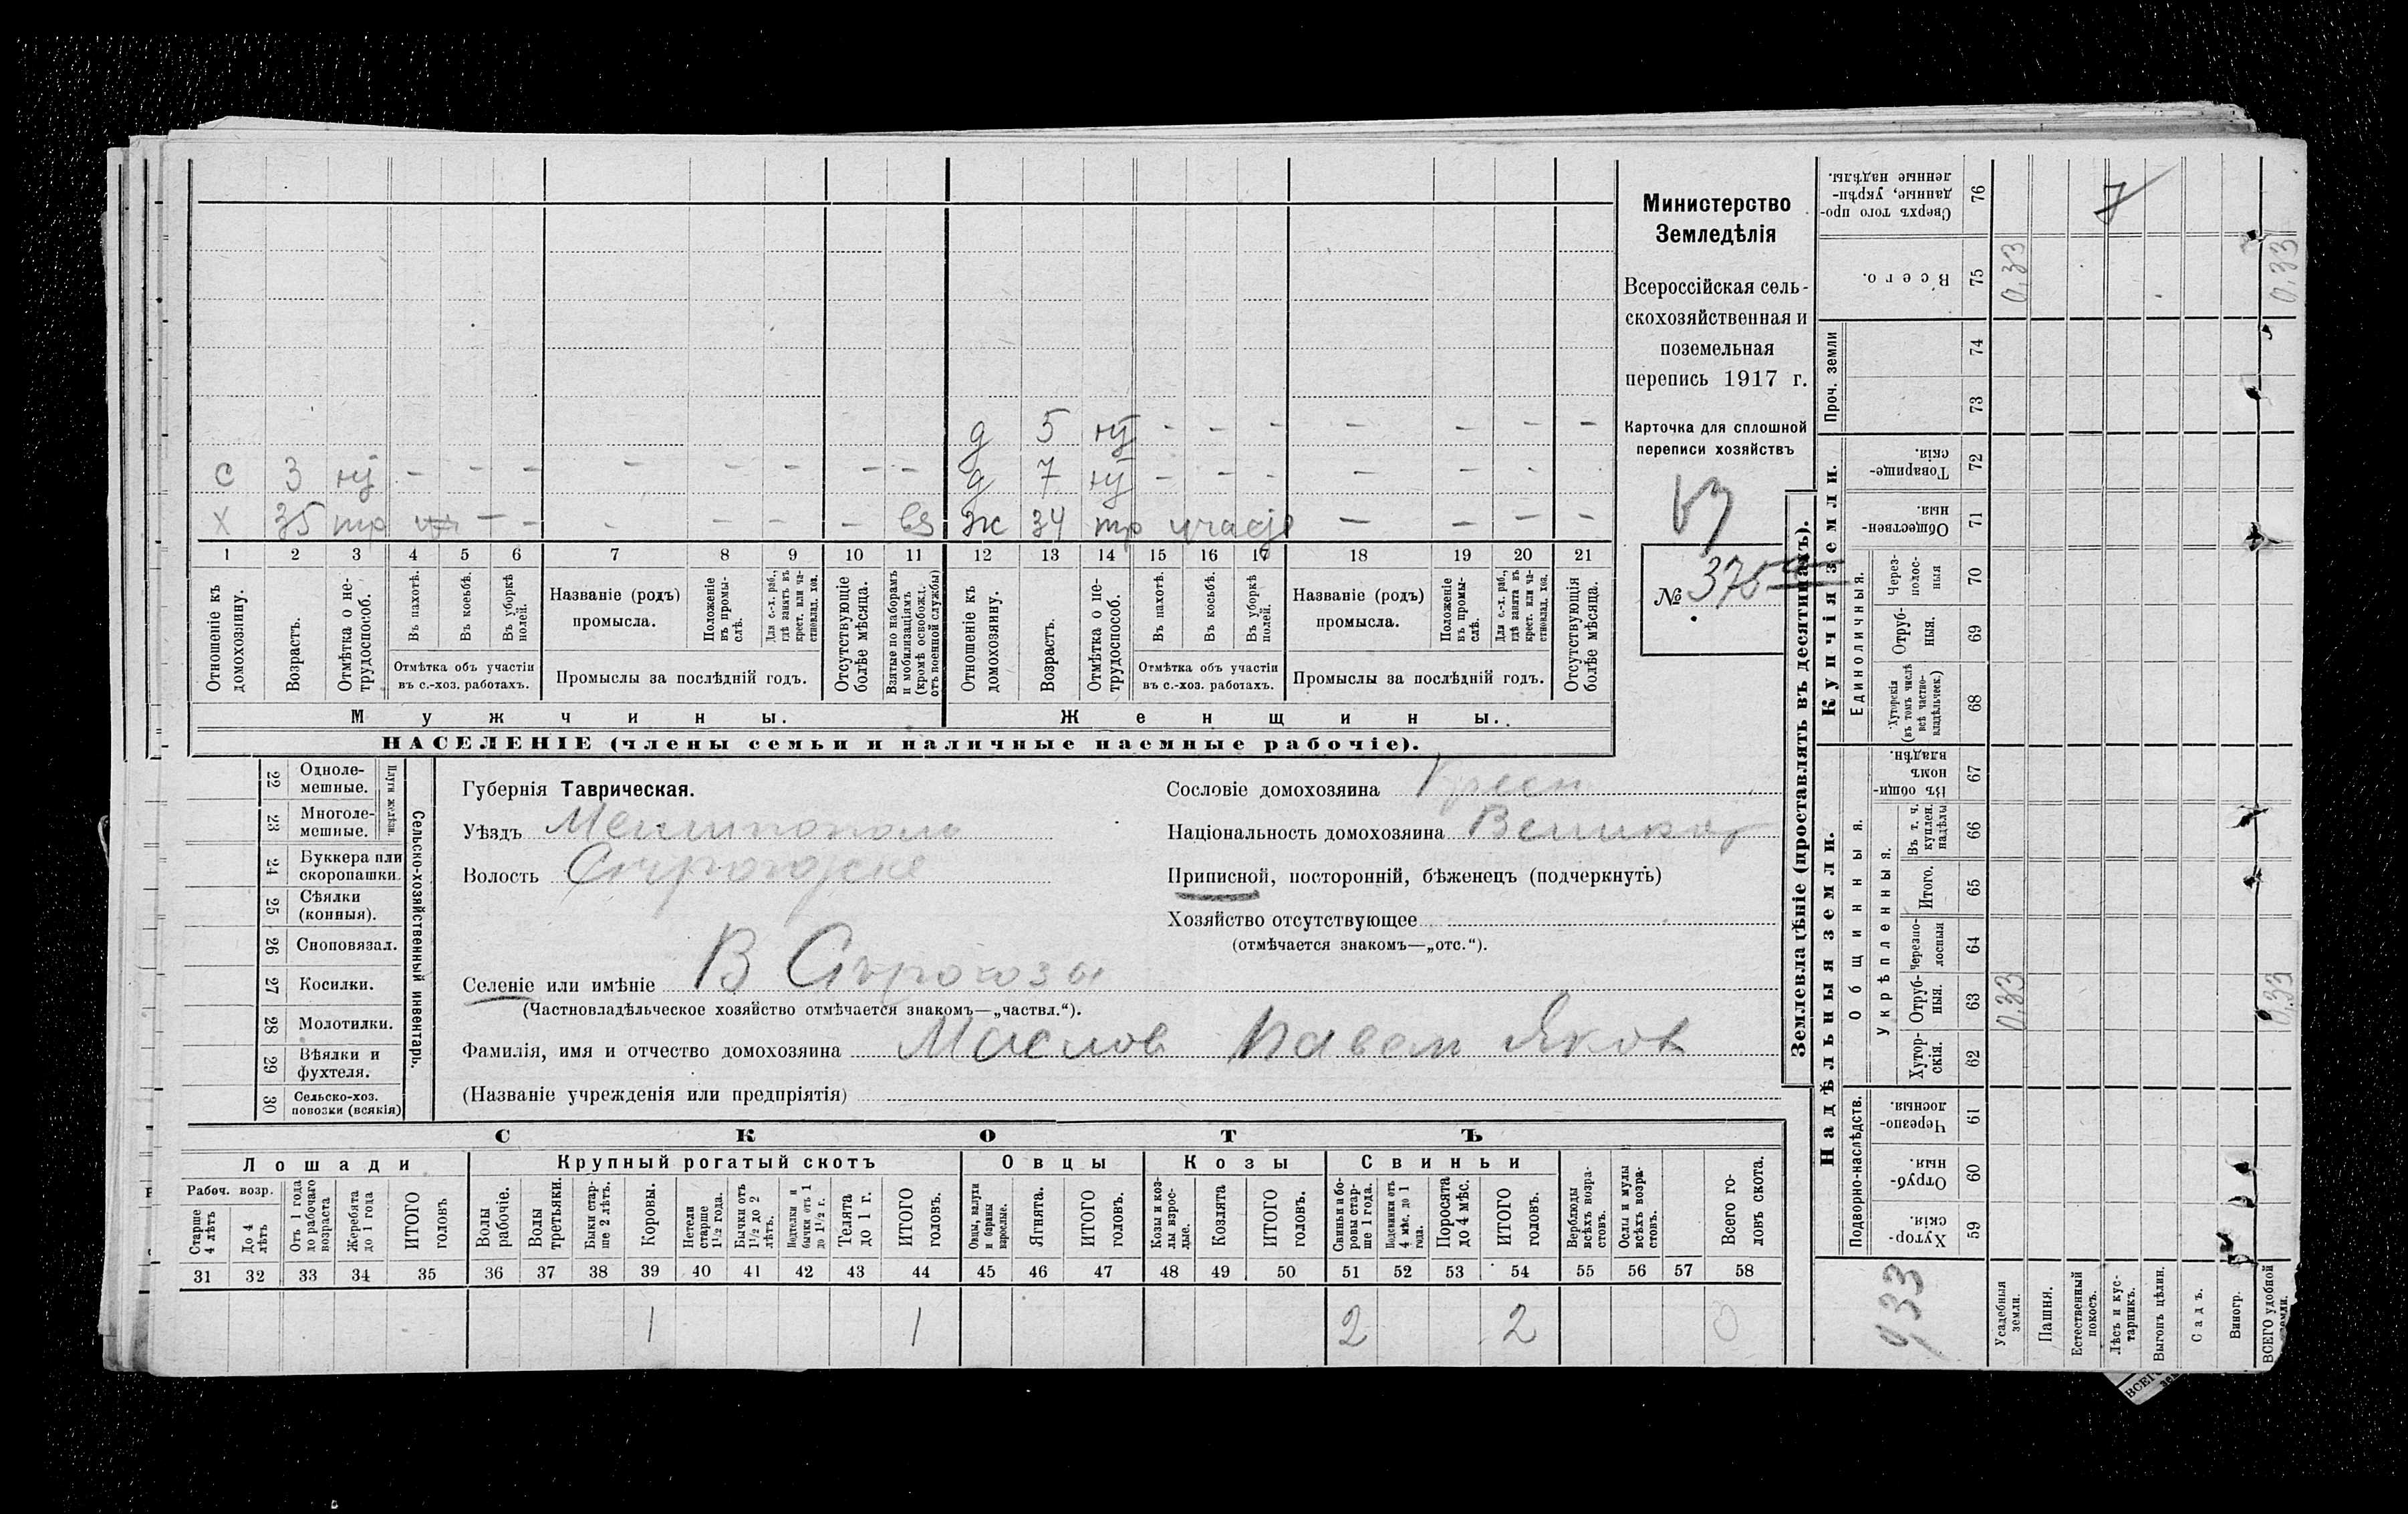 д 5 нт - - - - - - -
с 3 нт - - - - - - - - д 7 нт - - - - - - -
Х 35 тр - - - - - - вз ж 34 тр - - - -
1 2 3 4 5 6 7 8 9 10 11 12 13 14 15 16 17 18 19 20 21
Отношеніе къ домохозяину.
Возрастъ.
Отмѣтка о не-трудоспособ.
Въ пахотѣ.
Въ косьбѣ.
Въ уборкѣ полей.
Отмѣтка объ участіи
въ с.-хоз. работахъ.
Названіе (родъ)
промысла.
Положеніе въ промы-слѣ.
Для с.-х. раб., гдѣ занятъ въ крест. или ча-стновлад. хоз.
Промыслы за послѣдній годъ.
Отсутствующіе болѣе мѣсяца.
Взятые по наборамъ и мобилизаціямъ (кромѣ освобожд. отъ военной службы)
Отношеніе къ домохозяину.
Возрастъ.
Отмѣтка о не-трудоспособ.
Въ пахотѣ.
Въ косьбѣ.
Въ уборкѣ полей.
Отмѣтка объ участіи
въ с.-хоз. работахъ.
Названіе (родъ)
промысла.
Положеніе въ промы-слѣ.
Для с.-х. раб., гдѣ занята въ крест. или ча-стновлад. хоз.
Промыслы за послѣдній годъ.
Отсутствующія болѣе мѣсяца.
Мужчины.
Женщины.
НАСЕЛЕНІЕ (члены семьи и наличные наемные рабочіе).
Министерство
Земледѣлія
Всероссійская сель-
скохозяйственная и
поземельная
перепись 1917 г.
Карточка для сплошной
переписи хозяйствъ
№ 375
Сельско-хозяйственный инвентарь.
Плуги желѣзн.
22 Одноле-мешные.
23 Многоле-мешные.
24 Буккера или скоропашки.
25 Сѣялки (конныя).
26 Сноповязал.
27 Косилки.
28 Молотилки.
29 Вѣялки и фухтеля.
30 Сельско-хоз. повозки (всякія)
Губернія Таврическая.
Уѣздъ Мелитополь
Волость
Селеніе или имѣніе В Сѣрогозы
(Частновладѣльческое хозяйство отмѣчается знакомъ—„частвл.“).
Фамилія, имя и отчество домохозяина Маслов Павел Яков
(Названіе учрежденія или предпріятія)
Сословіе домохозяина Крест
Національность домохозяина Великор
Приписной, посторонній, бѣженецъ (подчеркнуть)
Хозяйство отсутствующее
(отмѣчается знакомъ—„отс.“).
СКОТЪ
Лошади
Крупный рогатый скотъ
Овцы
Козы
Свиньи
Рабоч. возр.
Старше 4 лѣтъ
До 4 лѣтъ
Отъ 1 года до рабочаго возраста
Жеребята до 1 года
ИТОГО головъ
Волы рабочіе.
Волы третьяки.
Быки стар-ше 2 лѣтъ.
Коровы.
Нетели старше 1½ года.
Бычки отъ 1½ до 2 лѣтъ.
Подтелки и бычки отъ 1 до 1½ г.
Телята до 1 г.
ИТОГО головъ.
Овцы, валухи и бараны взрослые.
Ягнята.
ИТОГО головъ.
Козы и коз-лы взрос-лые.
Козлята
ИТОГО головъ.
Свиньи и бо-ровы стар-ше 1 года.
Подсвинки отъ 4 мѣс. до 1 года.
Поросята до 4 мѣс.
ИТОГО головъ.
Верблюды всѣхъ возра-стовъ.
Ослы и мулы всѣхъ возра-стовъ.
Всего го-ловъ скота.
31 32 33 34 35 36 37 38 39 40 41 42 43 44 45 46 47 48 49 50 51 52 53 54 55 56 57 58
1 1 2 2 0
Землевладѣніе (проставлять въ десятинахъ).
Купчія земли.
Надѣльныя земли.
Проч. земли
Единоличныя.
Общинныя.
Укрѣпленныя.
Подворно-наслѣдств.
Сверхъ того про-данные, укрѣп-ленные надѣлы. 76
Всего. 75 0,33 0,33
74
73
Товарище-скія. 72
Обществен-ныя. 71
Через-полос-ныя 70
Отруб-ныя. 69
Хуторскія (въ томъ числѣ всѣ частно-владѣльческ.) 68
Въ общи-номъ владѣн. 67
Въ т. ч. куплен. надѣлы 66
Итого. 65
Черезпо-лосныя 64
Отруб-ныя. 63 0,33 0,33
Хутор-скія. 62
Черезпо-лосныя. 61
Отруб-ныя. 60
Хутор-скія. 59
0,33
Усадебныя земли.
Пашня.
Естественный покосъ.
Лѣсъ и кус-тарникъ.
Выгонъ цѣлин.
Садъ.
Виногр.
ВСЕГО удобной земли.